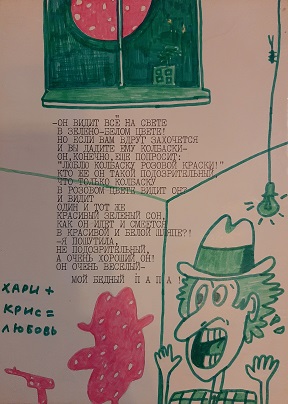 -ОН ВИДИТ ВСЁ НА СВЕТЕ
В ЗЕЛЕНО-БЕЛОМ ЦВЕТЕ!
НО ЕСЛИ ВАМ ВДРУГ ЗАХОЧЕТСЯ
И ВЫ ДАДИТЕ ЕМУ КОЛБАСКИ-
ОН,КОНЕЧНО,ЕЩЕ ПОПРОСИТ:
"ЛЮБЛЮ КОЛБАСКУ РОЗОВОЙ КРАСКИ!"
КТО ЖЕ ОН ТАКОЙ ПОДОЗРИТЕЛЬНЫЙ,
ЧТО ТОЛЬКО КОЛБАСКУ
В РОЗОВОМ ЦВЕТЕ ВИДИТ ОН?
И ВИДИТ
ОДИН И ТОТ ЖЕ
КРАСИВЫЙ ЗЕЛЕНЫЙ СОН,
КАК ОН ИДЕТ И СМЕЕТСЯ
В КРАСИВОЙ И БЕЛОЙ ШЛЯПЕ?!
-Я ПОШУТИЛА,
НЕ ПОДОЗРИТЕЛЬНЫЙ,
А ОЧЕНЬ ХОРОШИЙ ОН!
ОН ОЧЕНЬ ВЕСЕЛЫЙ-
МОЙ БЕДНЫЙ П А П А !
ХАРИ +
КРИС =
ЛЮБОВЬ